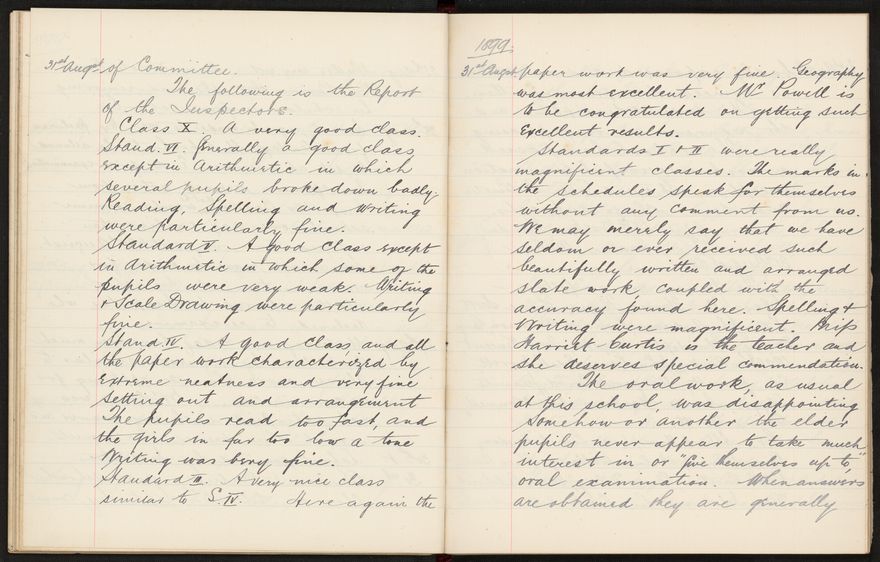 31st Augst of Committee.
The following is the Report
of the Inspectors.
Class X. A very good class.
Stand. VI. Generally a good class
except in Arithmetic in which
several pupils broke down badly.
Reading, Spelling and Writing
were particularly fine.
Standard V. A good class except
in Arithmetic in which some of the
pupils were very weak. Writing
& Scale Drawing were particularly
fine.
Stand. IV. A good class, and all
the paper work characterized by
extreme neatness and very fine
setting out and arrangement
The pupils read too fast, and
the girls in far too low a tone
Writing was very fine.
Standard III. A very nice class
similar to S. IV. Here again the
1899.
31st Augst paper work was very fine. Geography
was most excellent. Mr Powell is
to be congratulated on getting such
excellent results.
Standards I & II were really
magnificent classes. The marks in
the schedules speak for themselves
without any comment from us.
We may merely say that we have
seldom or ever received such
beautifully written and arranged
slate work coupled with the
accuracy found here. Spelling &
Writing were magnificent. Miss
Harriet Curtis is the teacher and
she deserves special commendation.
The oral work, as usual
at this school, was disappointing
Somehow or another the elder
pupils never appear to take much
interest in or "give themselves up to"
oral examination. When answers
are obtained they are generally